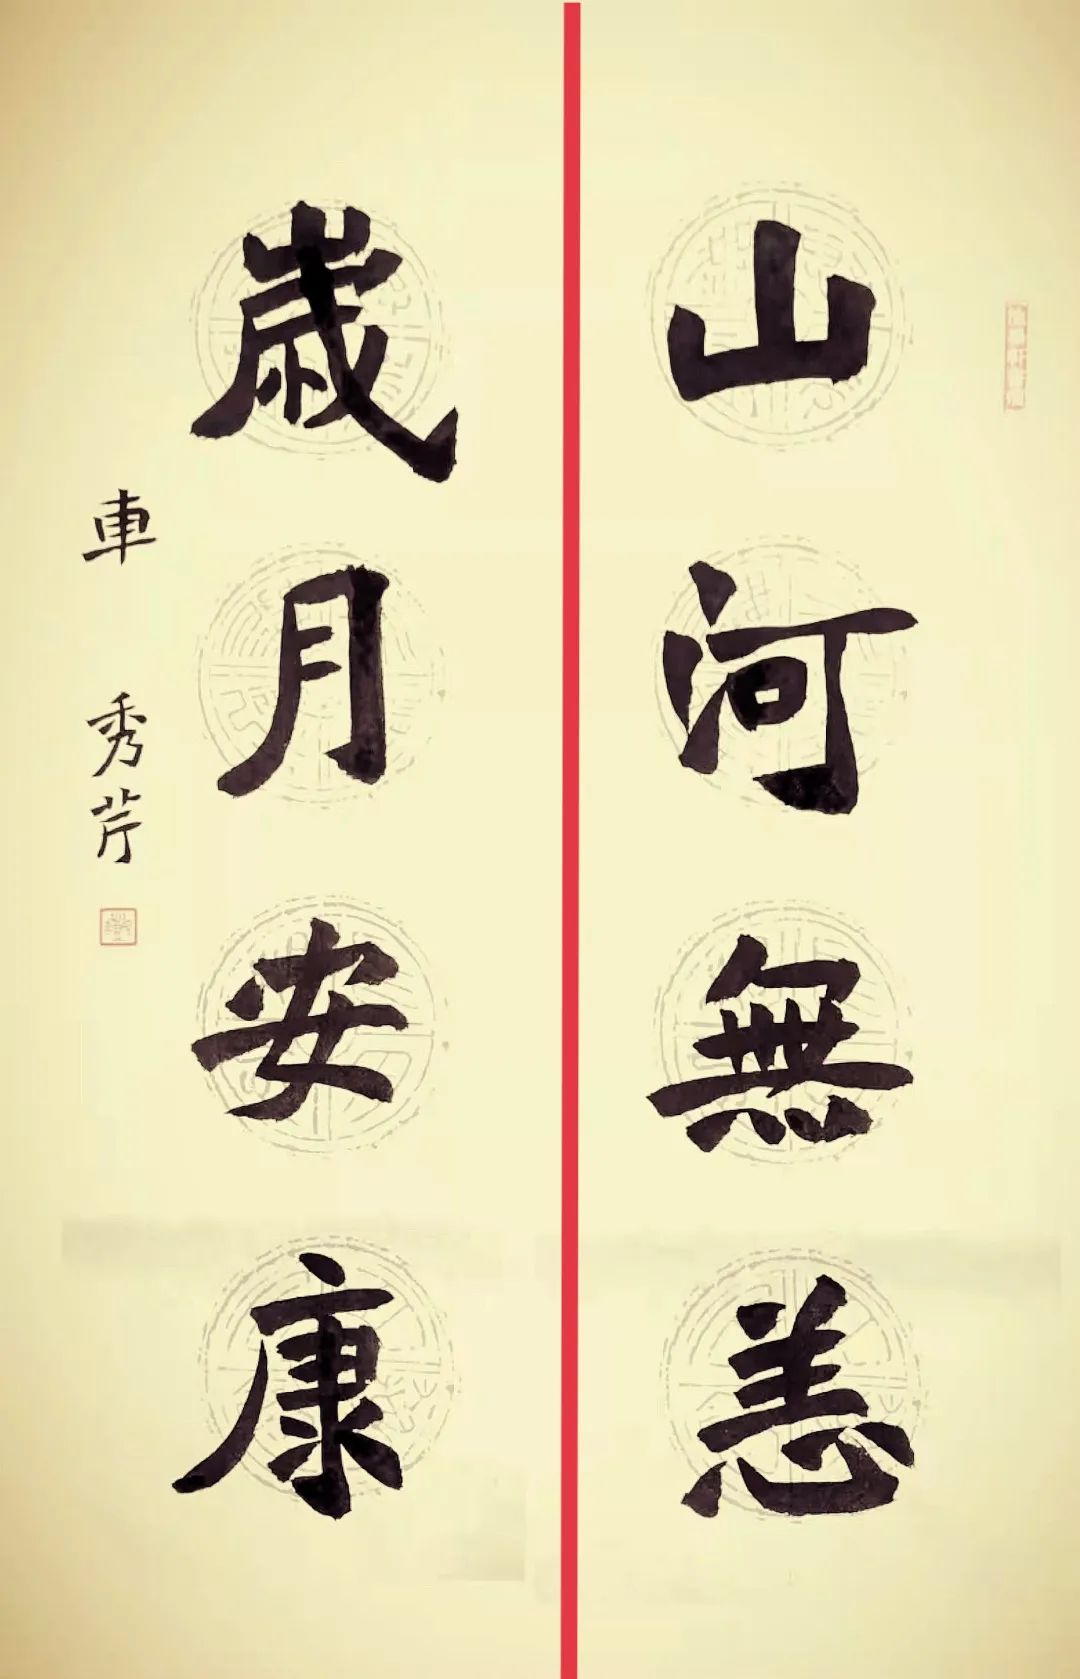 山河無恙
歲月安康
車 秀芹